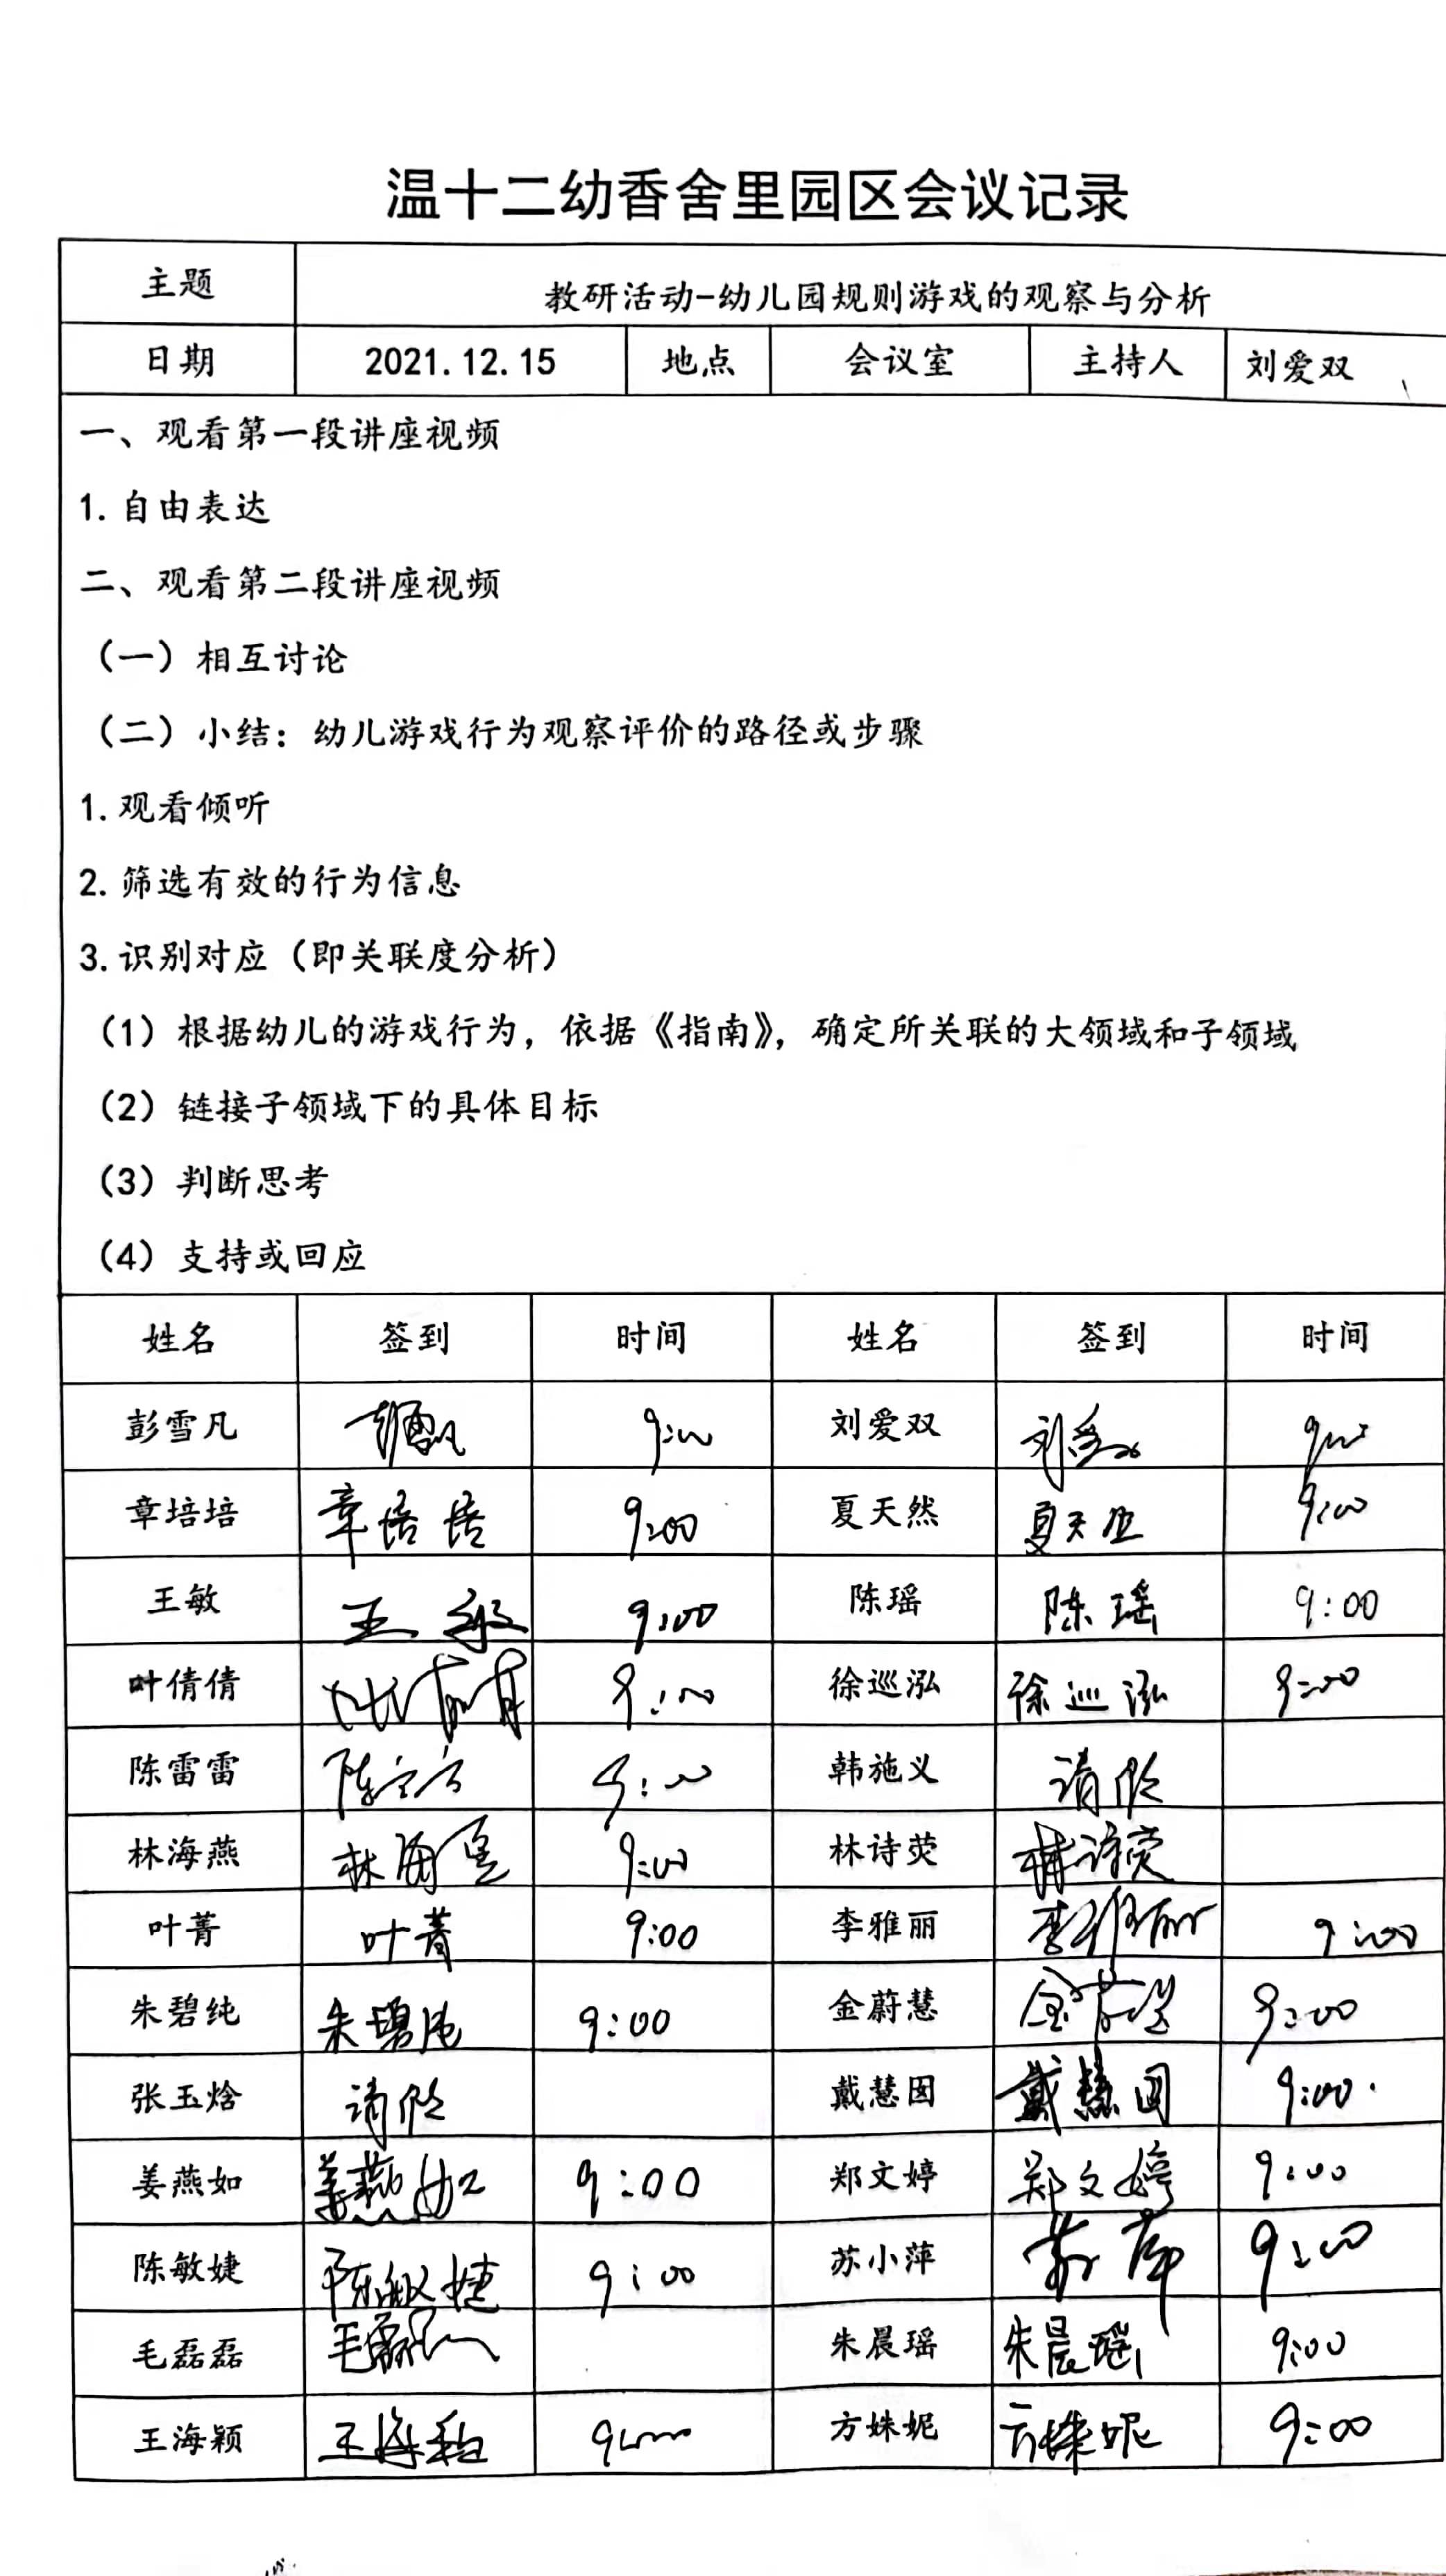 温十二幼香舍里园区会议记录
主题 教研活动-幼儿园规则游戏的观察与分析
日期 2021.12.15 地点 会议室 主持人 刘爱双
一、观看第一段讲座视频
1.自由表达
二、观看第二段讲座视频
（一）相互讨论
（二）小结：幼儿游戏行为观察评价的路径或步骤
1.观看倾听
2.筛选有效的行为信息
3.识别对应（即关联度分析）
（1）根据幼儿的游戏行为，依据《指南》，确定所关联的大领域和子领域
（2）链接子领域下的具体目标
（3）判断思考
（4）支持或回应
姓名 签到 时间 姓名 签到 时间
彭雪凡 彭雪凡 9:00 刘爱双 刘爱双 9:00
章培培 章培培 9:00 夏天然 夏天 9:00
王敏 王敏 9:00 陈瑶 陈瑶 9:00
叶倩倩 叶倩倩 9:00 徐巡泓 徐巡泓 9:00
陈雷雷 陈雷雷 9:00 韩施义 请假
林海燕 林海燕 9:00 林诗荧 林诗荧
叶菁 叶菁 9:00 李雅丽 李雅丽 9:00
朱碧纯 朱碧纯 9:00 金蔚慧 金蔚慧 9:00
张玉焓 请假 戴慧囡 戴慧囡 9:00
姜燕如 姜燕如 9:00 郑文婷 郑文婷 9:00
陈敏婕 陈敏婕 9:00 苏小萍 苏萍 9:00
毛磊磊 毛磊磊 朱晨瑶 朱晨瑶 9:00
王海颖 王海颖 9:00 方姝妮 方姝妮 9:00